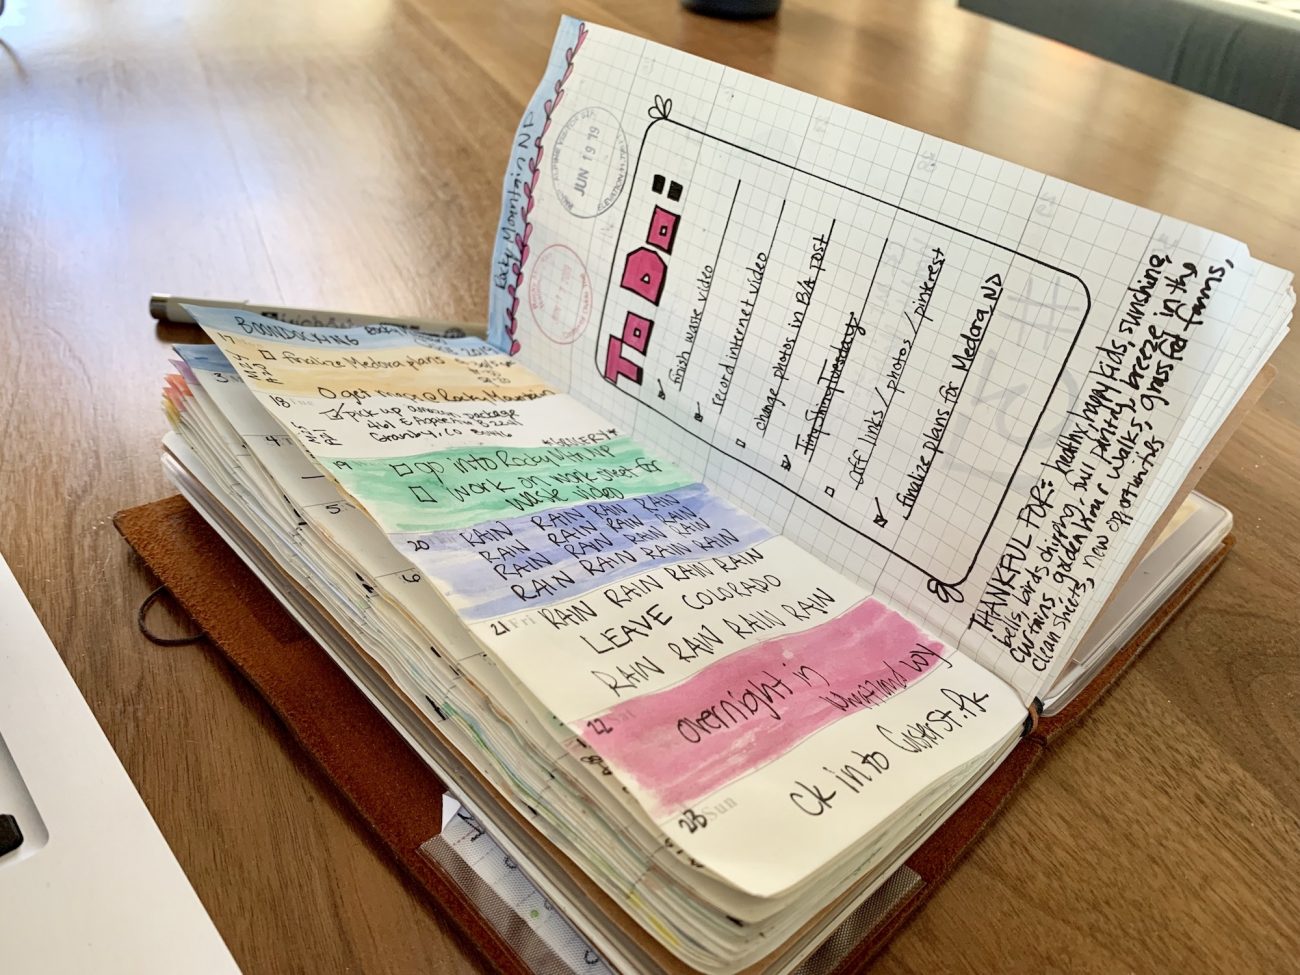 BOONDOCKING
17
finalize Medora plans
18
pick up amazon package
Granby, CO 80446
19
go into Rocky Mtn NP
work on work sheet for
waste video
20
RAIN RAIN RAIN RAIN
RAIN RAIN RAIN RAIN
RAIN RAIN RAIN RAIN
RAIN RAIN RAIN RAIN
21 Fri
RAIN RAIN RAIN RAIN
LEAVE COLORADO
RAIN RAIN RAIN RAIN
22
overnight in
23 Sun
ck into Custer St. Pk
Rocky Mountain NP
JUN 19 19
To Do:
finish waste video
record internet video
change photos in B/A post
Tiny Shiny Tuesday
aff links / photos / pinterest
finalize plans for Medora, ND
THANKFUL FOR: healthy, happy kids, sunshine,
bells, birds chirping, full pantry, breeze in the
curtains, golden hour walks, grassfed farms,
clean sheets, new opportunities,